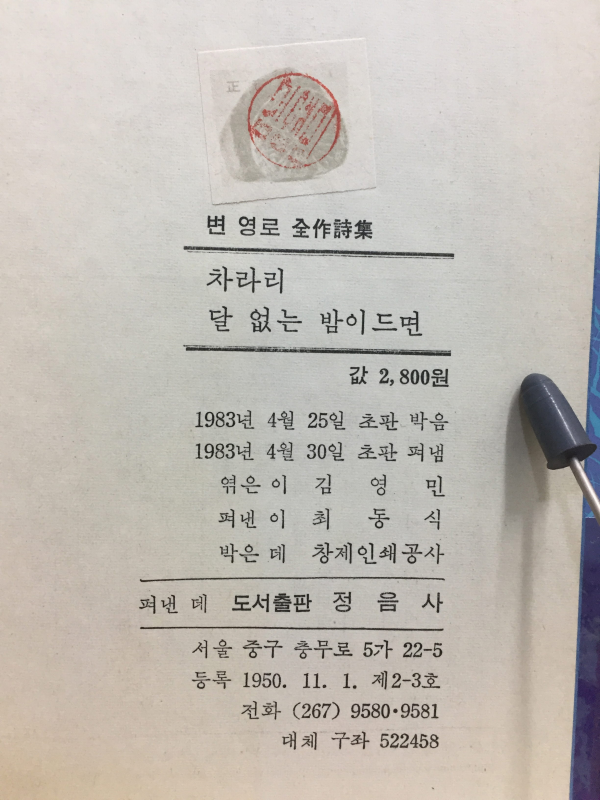 正
변 영로 全作詩集
차라리
달 없는 밤이드면
값 2,800원
1983년 4월 25일 초판 박음
1983년 4월 30일 초판 펴냄
엮은 이 김 영 민
펴낸 이 최 동 식
박은 데 창제인쇄공사
펴낸 데 도서출판 정 음 사
서울 중구 충무로 5가 22-5
등록 1950. 11. 1. 제2-3호
전화 (267) 9580·9581
대체 구좌 522458